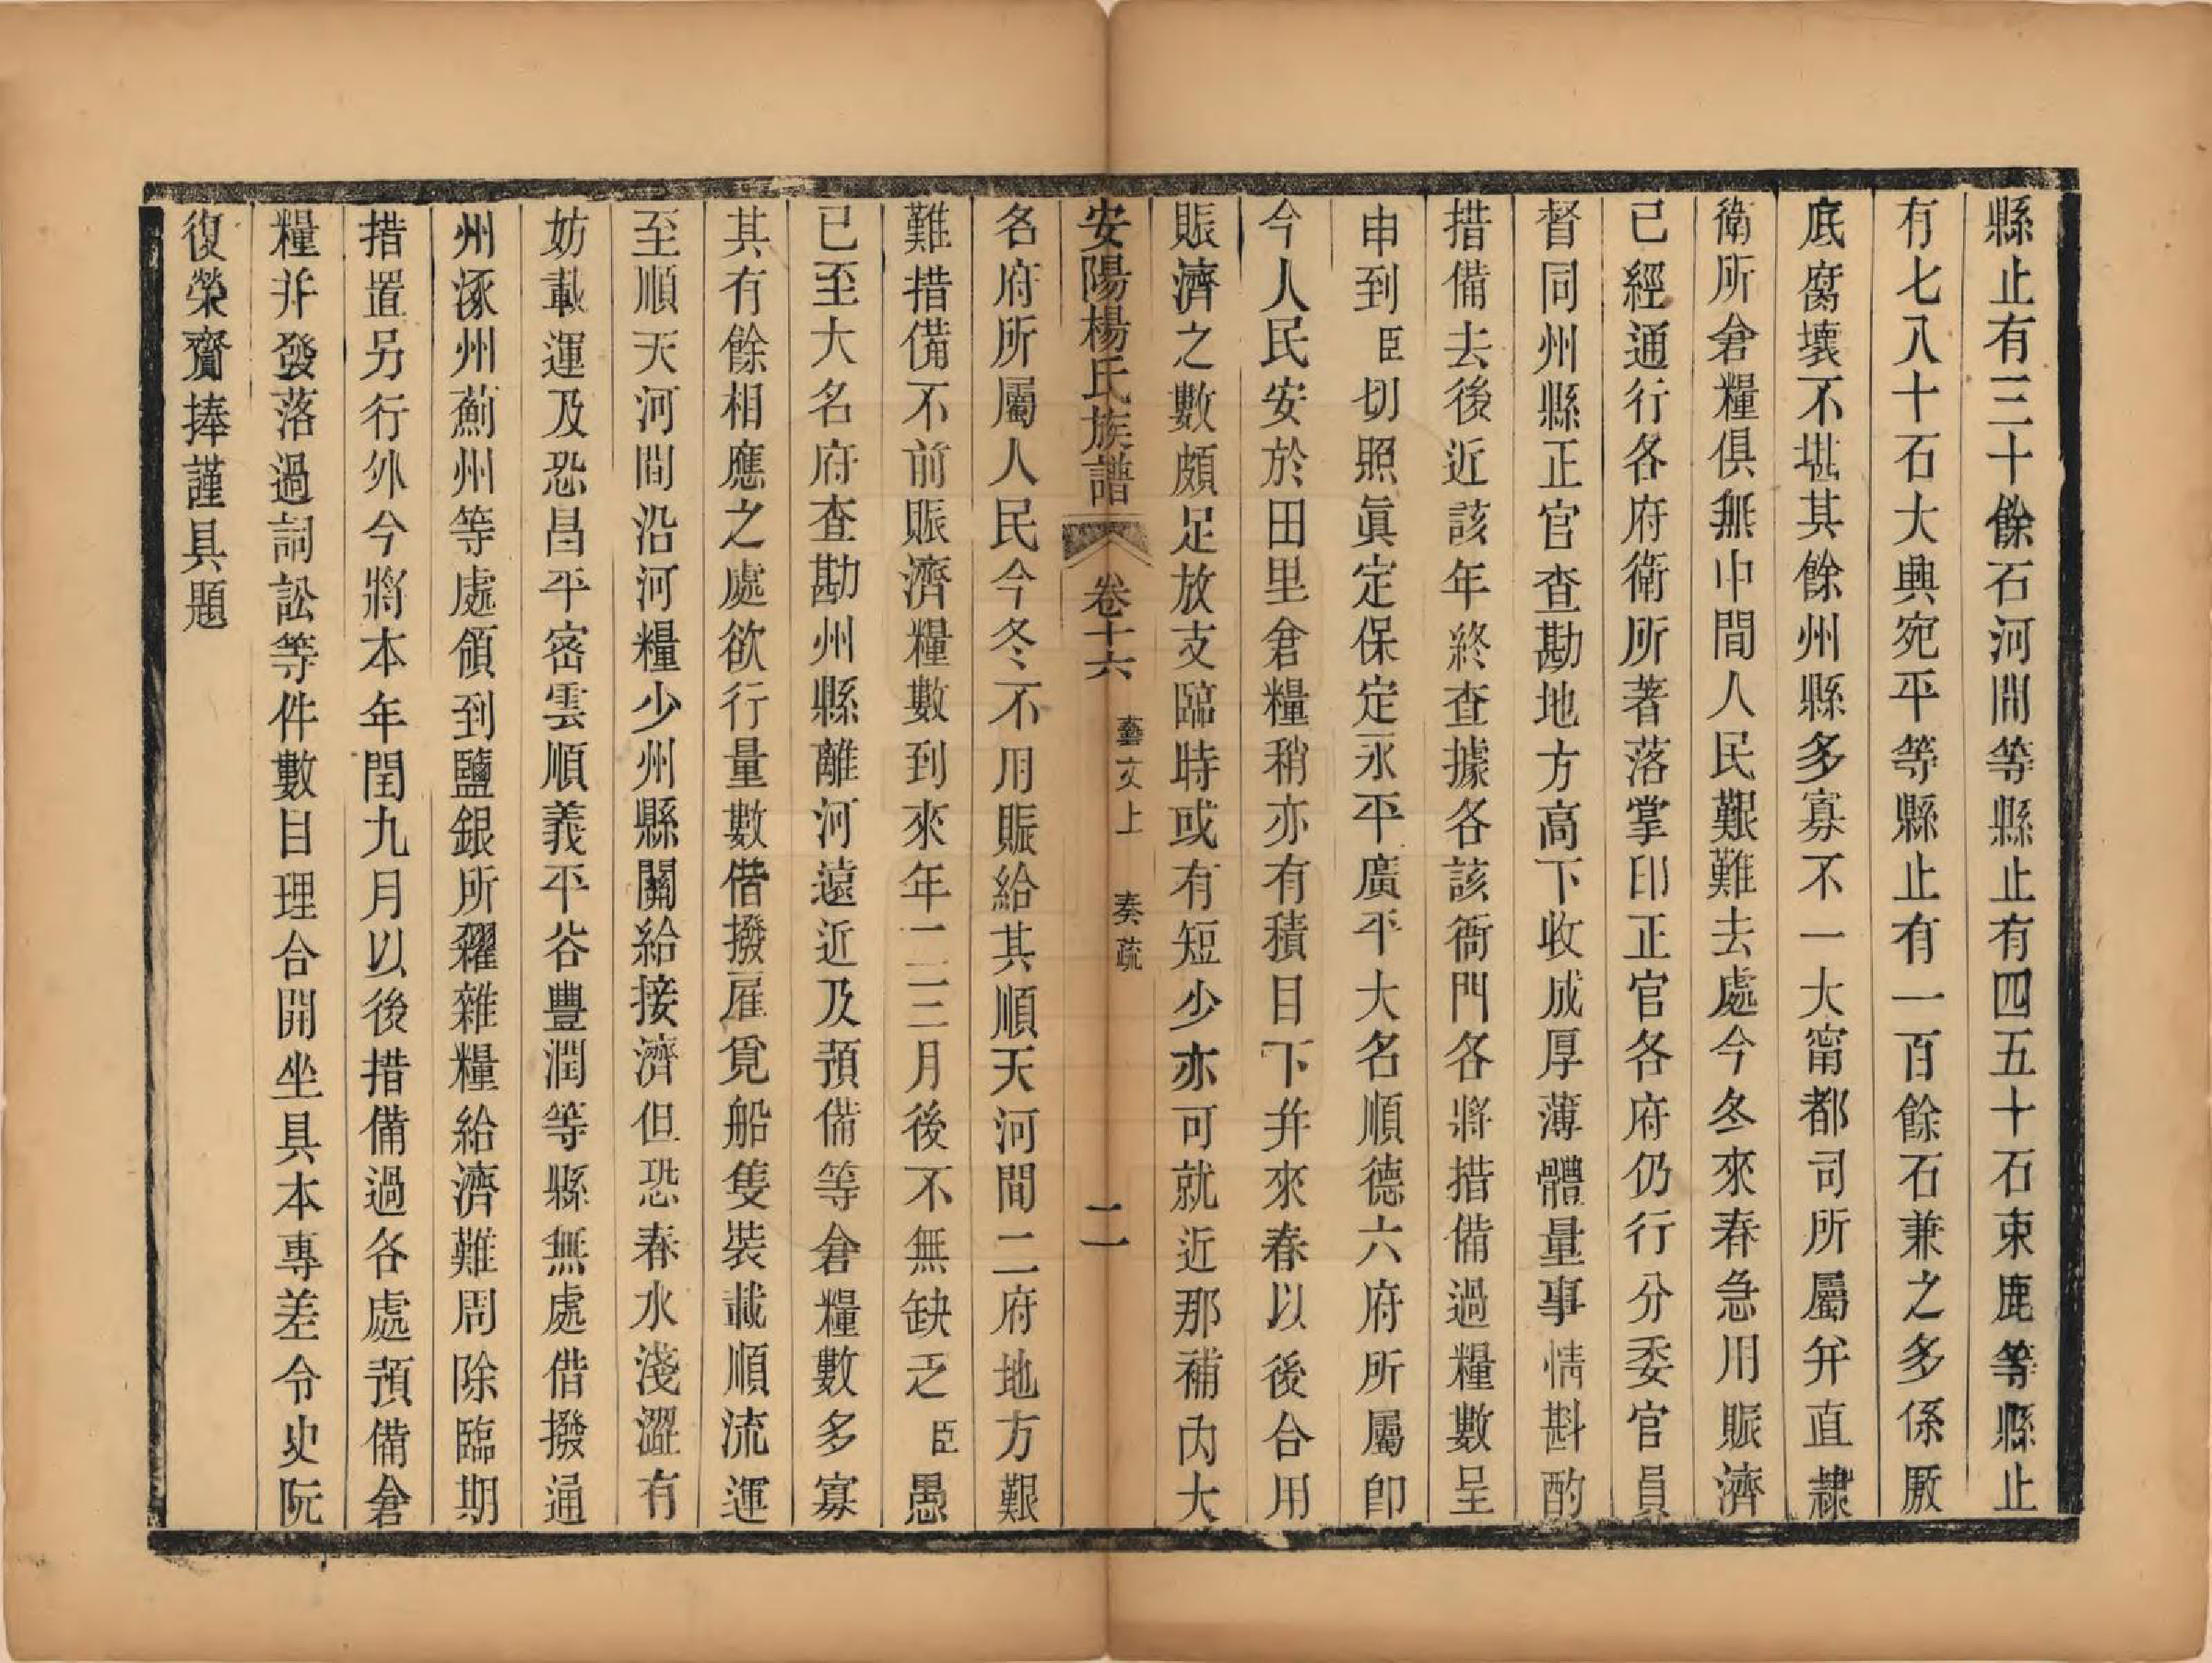 縣止有三十餘石河間等縣止有四五十石束鹿等縣止
有七八十石大興宛平等縣止有一百餘石兼之多係厫
底腐壞不堪其餘州縣多寡不一大甯都司所屬并直隸
衛所倉糧俱無中間人民艱難去處今冬來春急用賑濟
已經通行各府衛所著落掌印正官各府仍行分委官員
督同州縣正官查勘地方高下收成厚薄體量事情斟酌
措備去後近該年終查據各該衙門各將措備過糧數呈
申到臣切照眞定保定永平廣平大名順德六府所屬卽
今人民安於田里倉糧稍亦有積目下幷來春以後合用
賑濟之數頗足放支臨時或有短少亦可就近那補內大
安陽楊氏族譜 卷十六 藝文上 奏疏 二
各府所屬人民今冬不用賑給其順天河間二府地方艱
難措備不前賑濟糧數到來年二三月後不無缺乏臣愚
已至大名府查勘州縣離河遠近及預備等倉糧數多寡
其有餘相應之處欲行量數借撥雇覓船隻裝載順流運
至順天河間沿河糧少州縣關給接濟但恐春水淺澀有
妨載運及恐昌平密雲順義平谷豐潤等縣無處借撥通
州涿州薊州等處領到鹽銀所糴雜糧給濟難周除臨期
措置另行外今將本年閏九月以後措備過各處預備倉
糧并發落過詞訟等件數目理合開坐具本專差令史阮
復榮齎捧謹具題